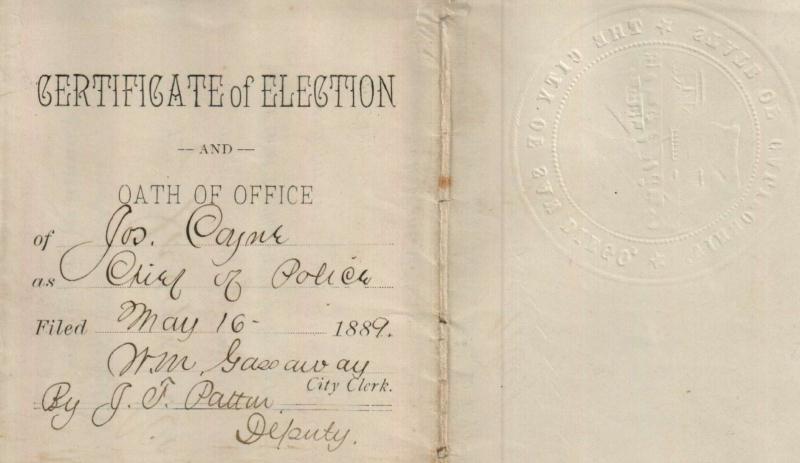 CERTIFICATE of ELECTION
— AND —
OATH OF OFFICE
of Jos. Coyne
as Chief of Police
Filed May 16- 1889.
Wm. Gassaway
City Clerk.
By J. F. Patten
Deputy.
THE CITY OF SAN DIEGO
STATE OF CALIFORNIA